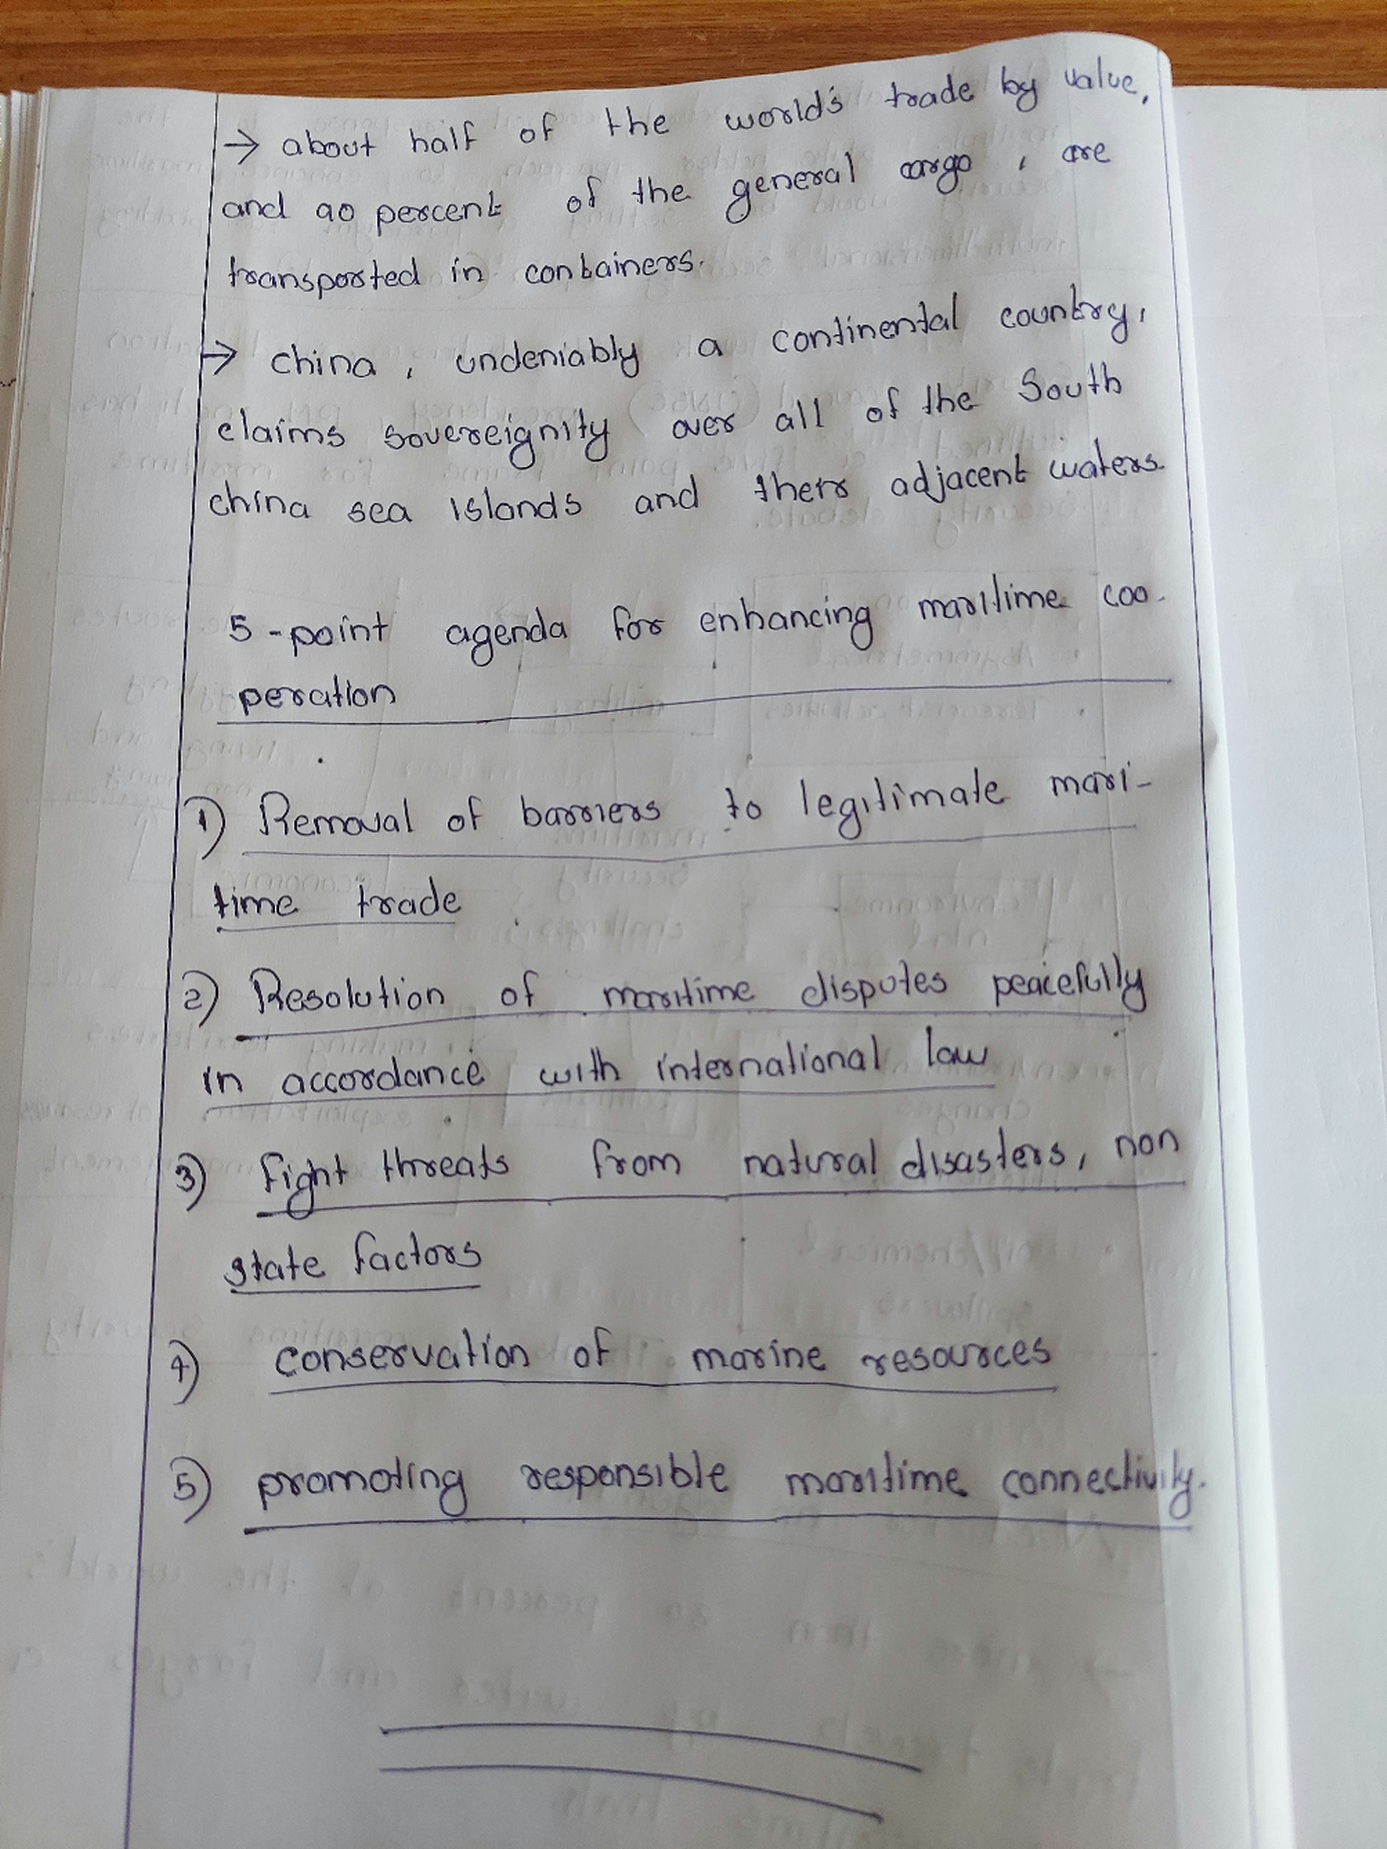 → about half of the world's trade by value,
and 90 percent of the general cargo, are
transported in containers.
→ china, undeniably a continental country,
claims sovereignity over all of the South
china sea islands and thers adjacent waters.
5-point agenda for enhancing maritime coo-
peration
1) Removal of barriers to legitimate mari-
time trade
2) Resolution of maritime disputes peacefully
in accordance with international law
3) fight threats from natural disasters, non
state factors
4) conservation of marine resources
5) promoting responsible maritime connectivity.